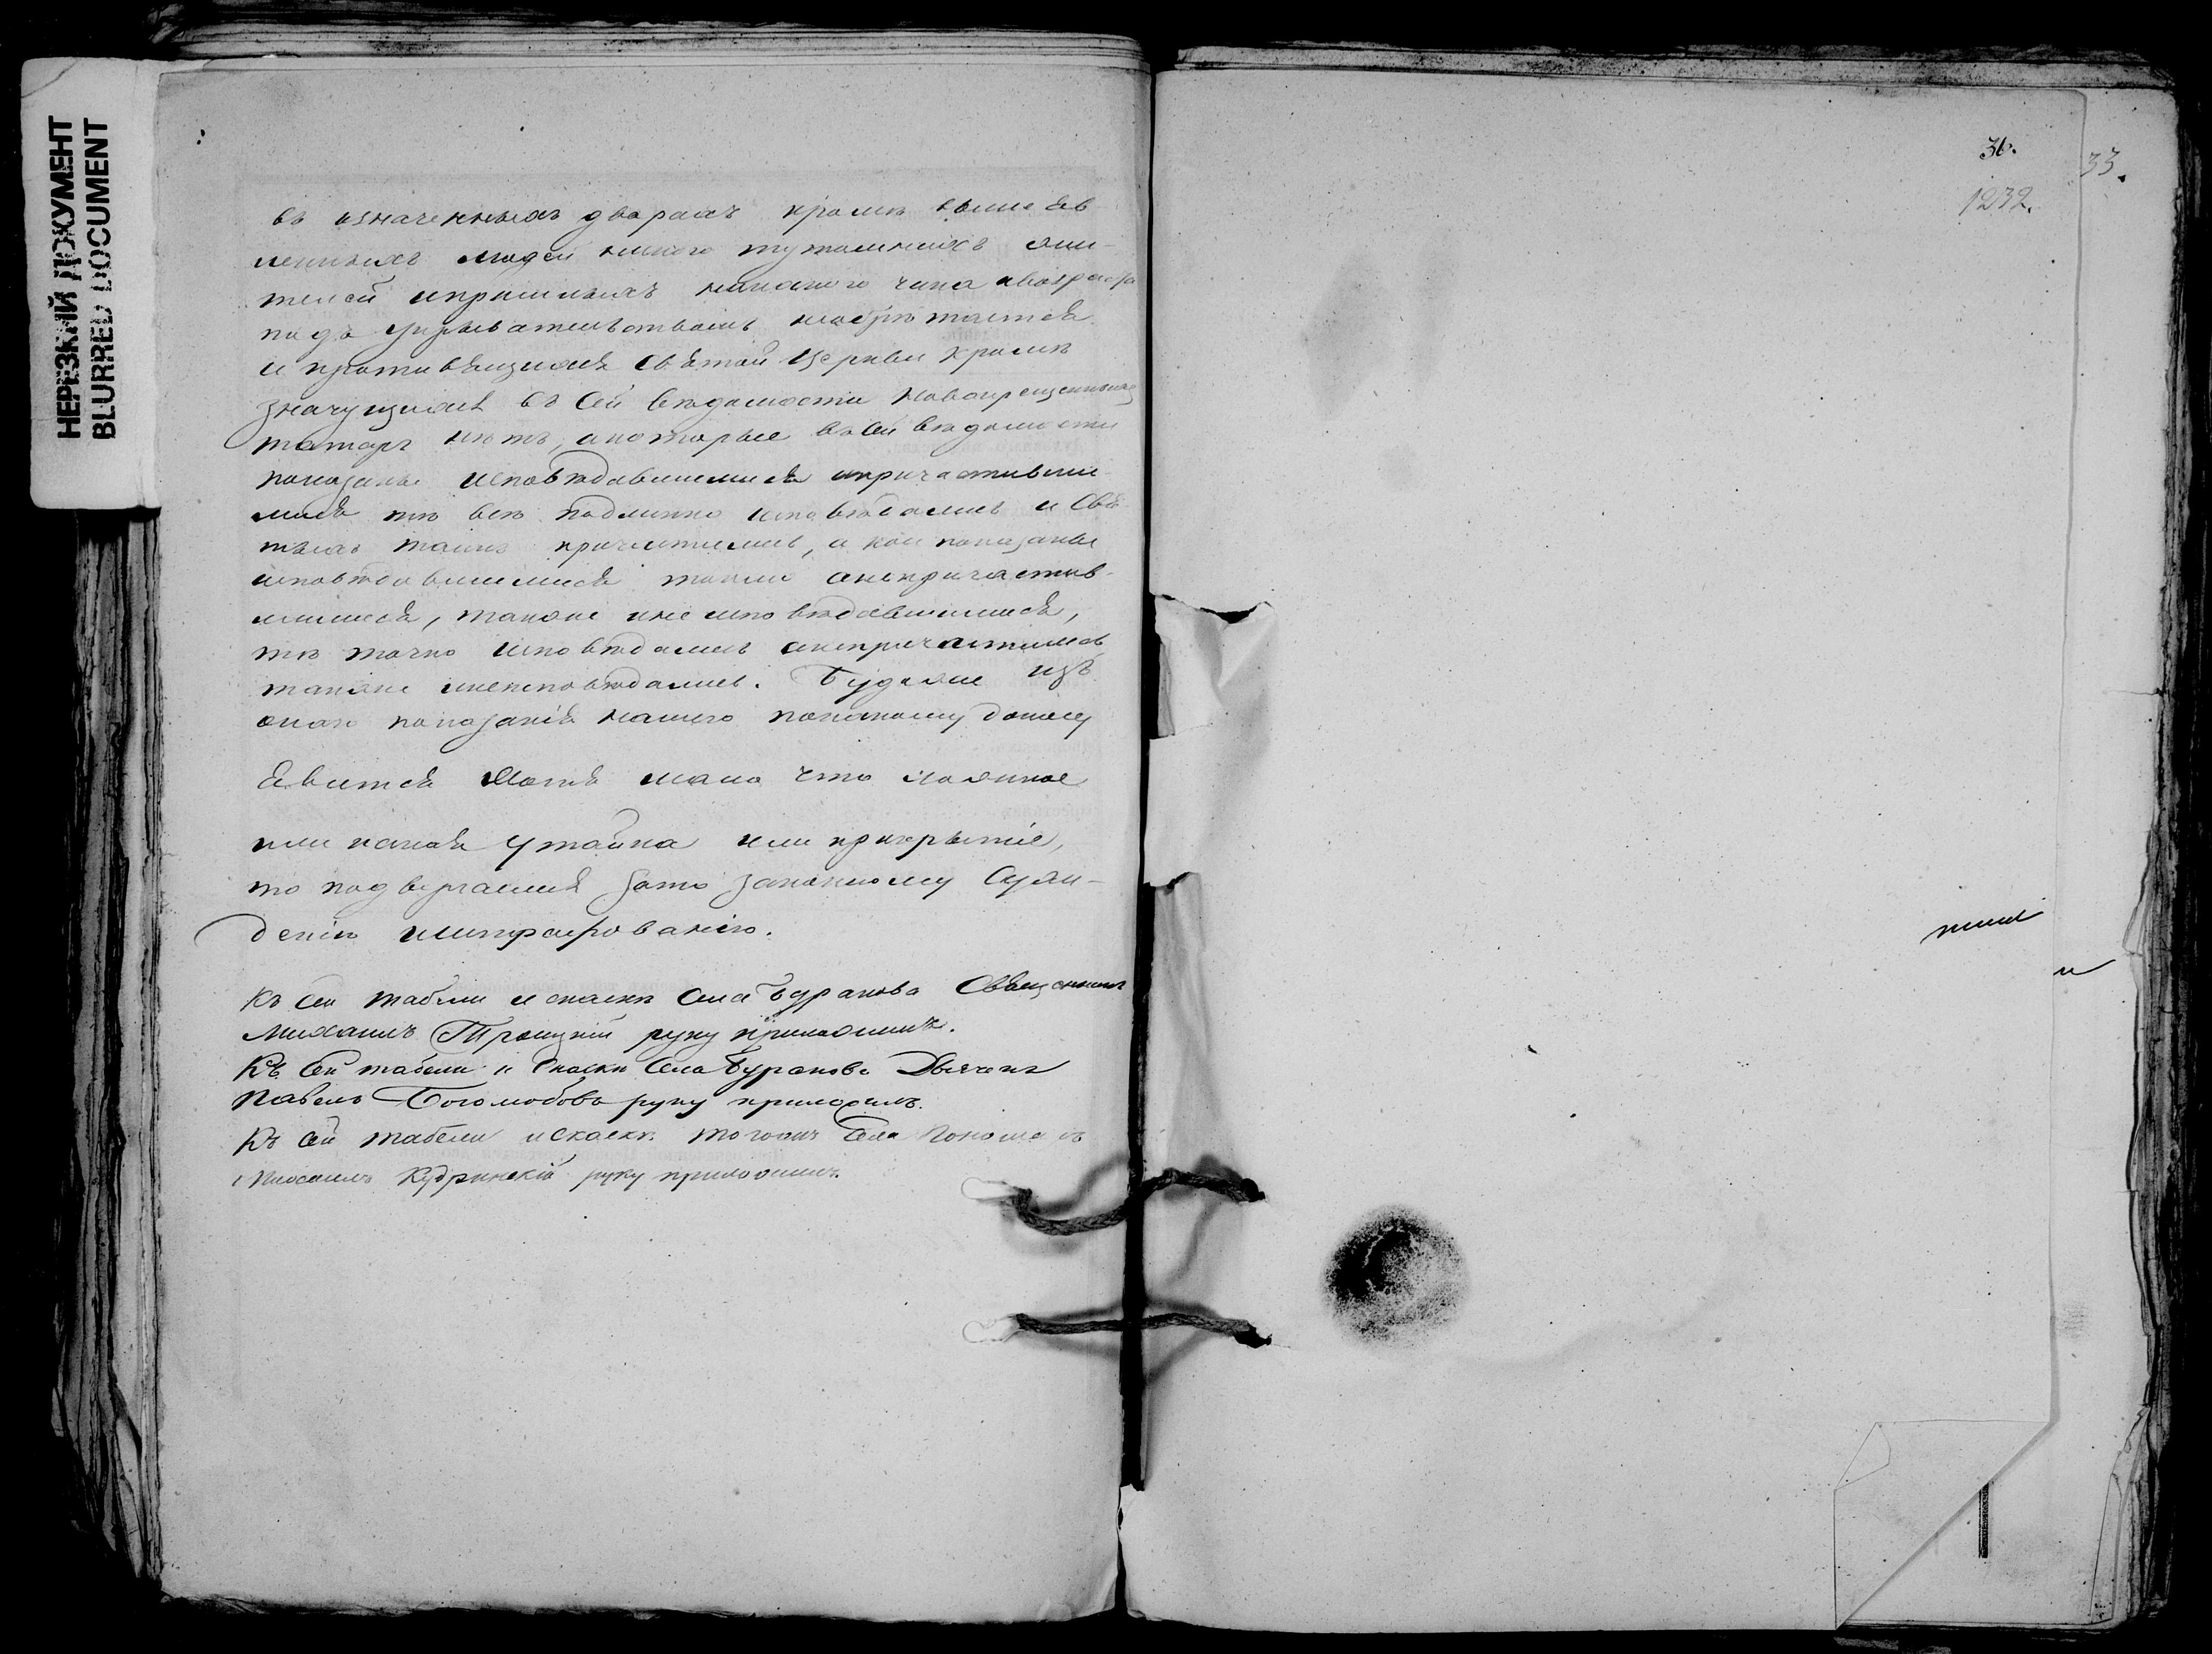 НЕРЕЗКИЙ ДОКУМЕНТ
BLURRED DOCUMENT
въ означенныхъ дворахъ кромѣ выше яв
ленныхъ людей никого тутошнихъ жи-
телей и пришлыхъ никакого чина и возраста
подъ укрывательствомъ необрѣтается
и противящихся святой церкви кромѣ
значущихся въ сей вѣдомости новокрещенныхъ
татаръ нѣтъ, а которые въ сей вѣдомости
показаны исповѣдавшимися и причастивши
мися тѣ всѣ подлинно исповѣдались и Свя
тыхъ таинъ причастились, а кои показаны
исповѣдавшимися токмо а непричастив-
шимися, також и неисповѣдавшимися,
тѣ точно исповѣдались а непричастились
також и неисповѣдались. Буде же изъ
онаго показанія нашего по какому доносу
явится хотя мало что ложное
или какая утайка или прикрытіе,
то подвергаемся зато законному суж-
денію и штрафованію.
Къ сей табели и скаски села Буракова Священникъ
Михаилъ Троицкій руку приложилъ.
Къ сей табели и скаски села Буракова Дьячекъ
Павелъ Боголюбовъ руку приложилъ.
Къ сей табели и скаски тогожъ села Пономарь
Михаилъ Кудринскій руку приложилъ.
33.
1232.